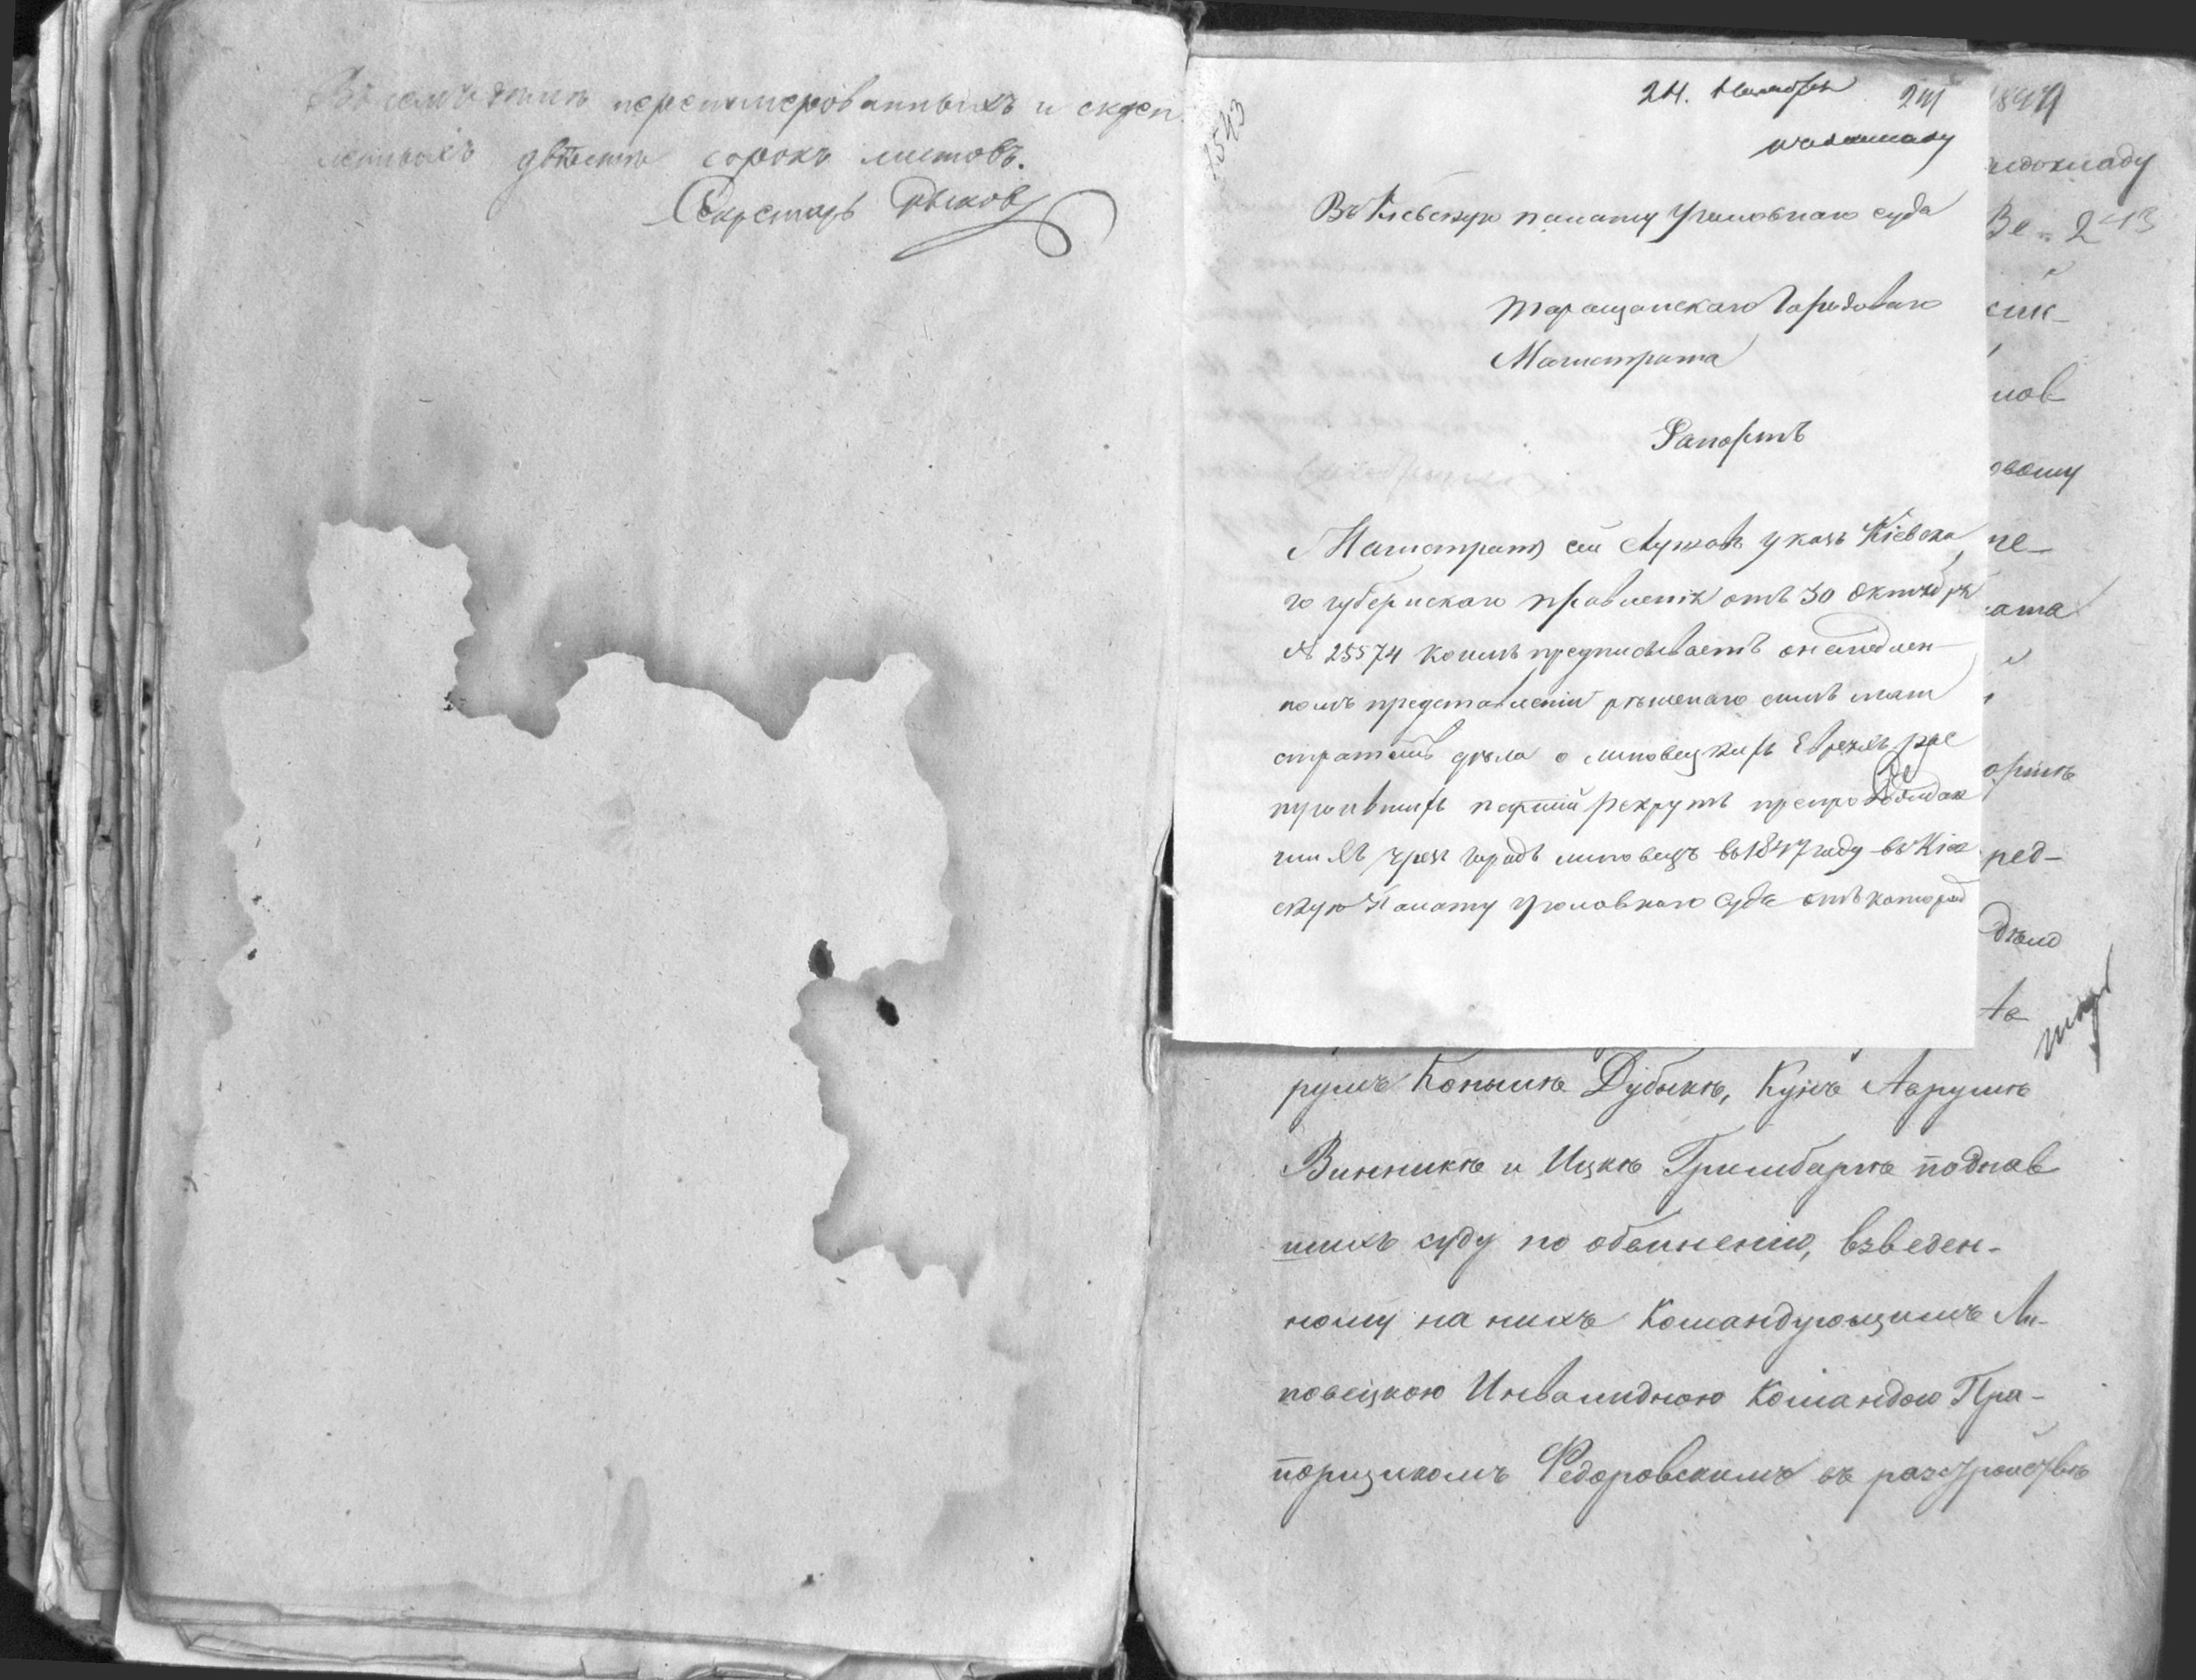 Въ семъ дѣлѣ перенумерованныхъ и скреп
ленныхъ двѣсти сорокъ листовъ.
Секретарь Рыковъ
24. Ноября 241
къ докладу
Въ Кіевскую палату Уголовнаго суда
Таращанскаго Городоваго
Магистрата
Рапортъ
Магистратъ сей слушавъ указъ Кіевска
го губернскаго правленія отъ 30 октября
№ 25574 коимъ предписываетъ о немедлен
номъ представленіи рѣшенаго симъ маги
стратомъ дѣла о липовецкихъ Евреяхъ рас
пустившихъ партіи рекрутъ
чрезъ городъ липовецъ въ 1847 году въ Кіев
скую Палату уголовнаго Суда отъ которой
1849
докладу
243
овому
ата
ред-
дѣло
румъ Копылѣ Дубыкѣ, Кунѣ Аврумѣ
Винникѣ и Ицкѣ Гримбаргѣ поднав
шихъ суду по обвиненію, взведен-
ному на нихъ Командующимъ Ли-
повецкою Инвалидною Командою Пра-
порщикомъ Федоровскимъ въ разстройствѣ